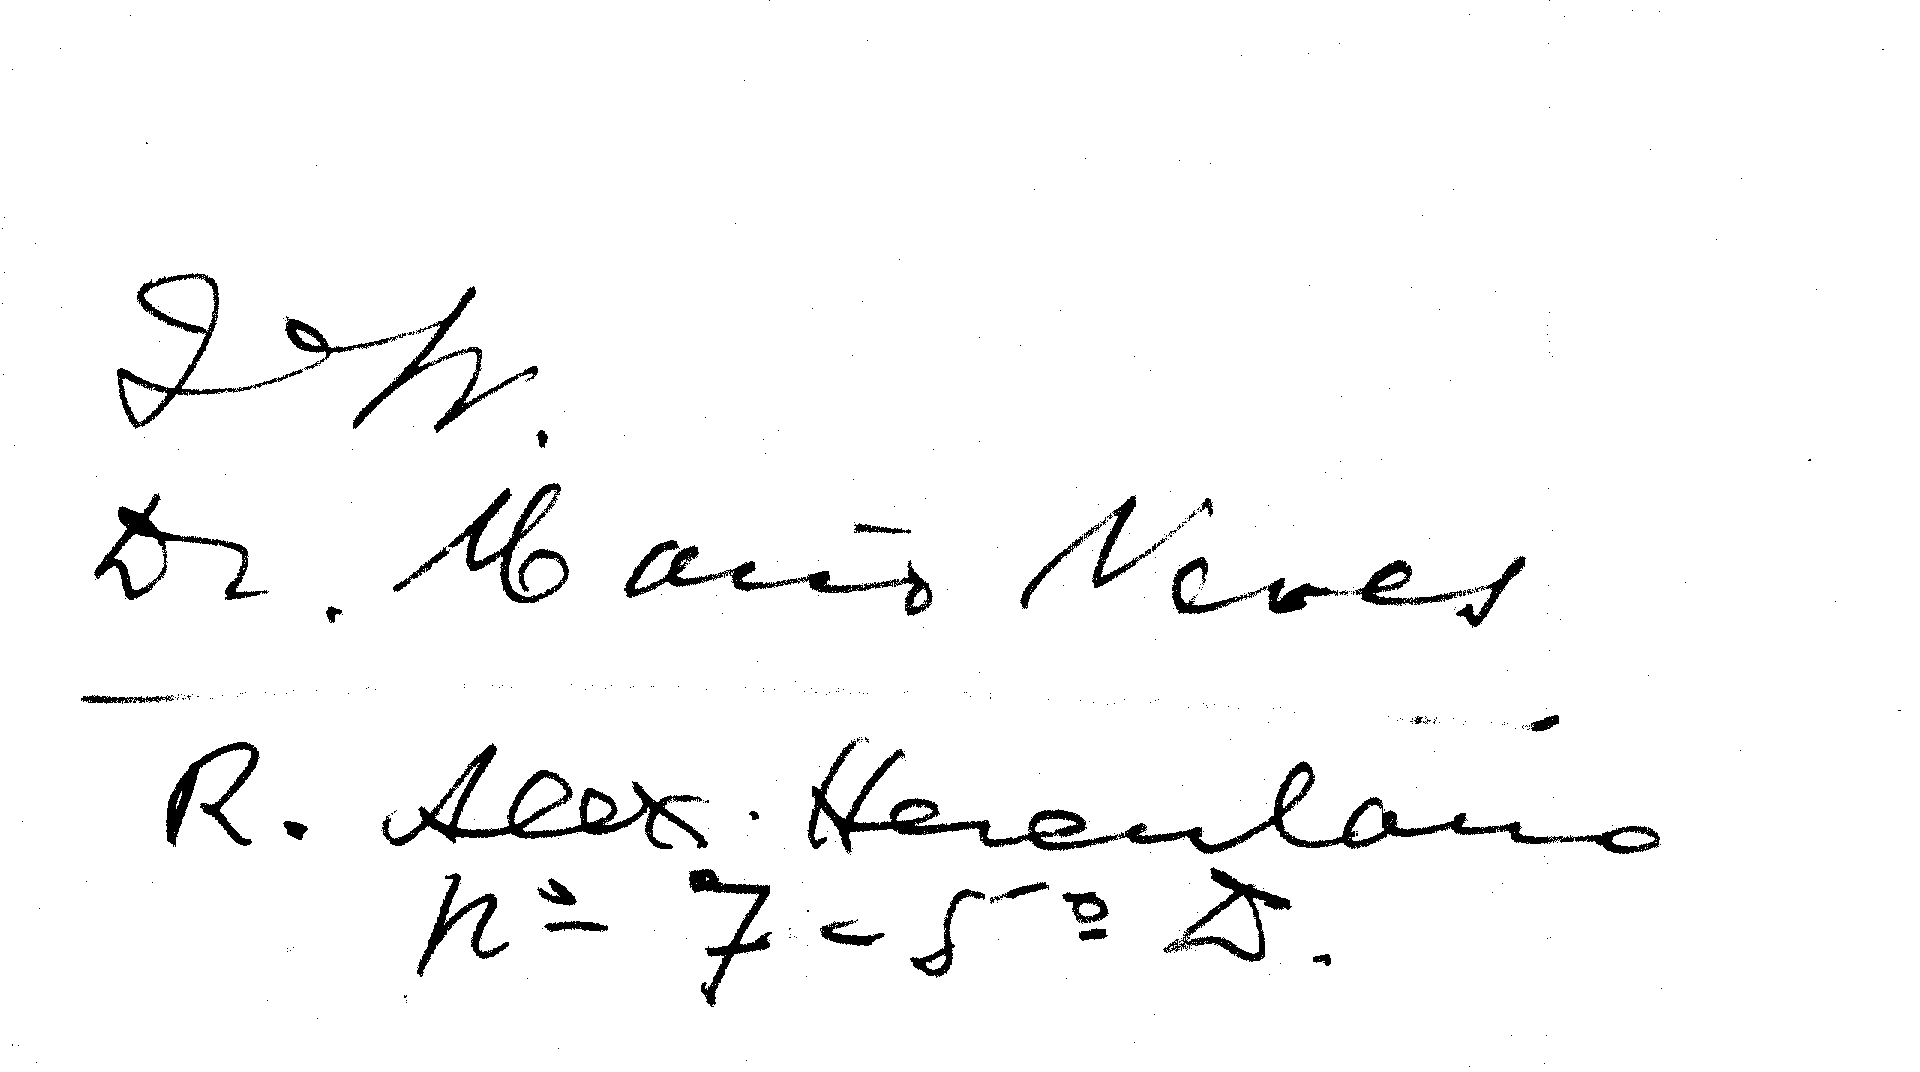 Dr. Mario Neves
R. Alex. Herculano
nº 7 - 5º D.